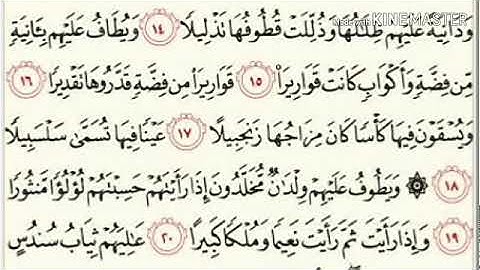 Made with KINEMASTER
وَدَانِيَةً عَلَيْهِمْ ظِلَٰلُهَا وَذُلِّلَتْ قُطُوفُهَا تَذْلِيلًا ١٤ وَيُطَافُ عَلَيْهِم بِـَٔانِيَةٍ
مِّن فِضَّةٍ وَأَكْوَابٍ كَانَتْ قَوَارِيرَا۠ ١٥ قَوَارِيرَا۟ مِن فِضَّةٍ قَدَّرُوهَا تَقْدِيرًا ١٦
وَيُسْقَوْنَ فِيهَا كَأْسًا كَانَ مِزَاجُهَا زَنجَبِيلًا ١٧ عَيْنًا فِيهَا تُسَمَّىٰ سَلْسَبِيلًا
١٨ ۞ وَيَطُوفُ عَلَيْهِمْ وِلْدَٰنٌ مُّخَلَّدُونَ إِذَا رَأَيْتَهُمْ حَسِبْتَهُمْ لُؤْلُؤًا مَّنثُورًا
١٩ وَإِذَا رَأَيْتَ ثَمَّ رَأَيْتَ نَعِيمًا وَمُلْكًا كَبِيرًا ٢٠ عَٰلِيَهُمْ ثِيَابُ سُندُسٍ